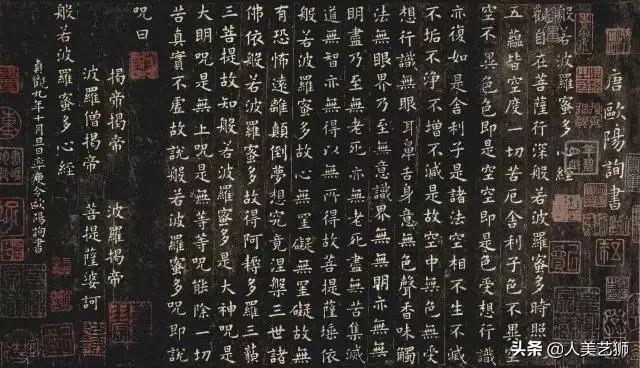 唐歐陽詢書
般若波羅蜜多心經
觀自在菩薩行深般若波羅蜜多時照
五蘊皆空度一切苦厄舍利子色不異空
空不異色色即是空空即是色受想行識
亦復如是舍利子是諸法空相不生不滅
不垢不淨不增不減是故空中無色無受
想行識無眼耳鼻舌身意無色聲香味觸
法無眼界乃至無意識界無無明亦無無
明盡乃至無老死亦無老死盡無苦集滅
道無智亦無得以無所得故菩提薩埵依
般若波羅蜜多故心無罣礙無罣礙故無
有恐怖遠離顛倒夢想究竟涅槃三世諸
佛依般若波羅蜜多故得阿耨多羅三藐
三菩提故知般若波羅蜜多是大神咒是
大明咒是無上咒是無等等咒能除一切
苦真實不虛故說般若波羅蜜多咒即說
咒曰
揭帝揭帝 波羅揭帝
波羅僧揭帝 菩提薩婆訶
般若波羅蜜多心經
貞觀九年十月旦日率更令歐陽詢書
头条 @人美艺狮